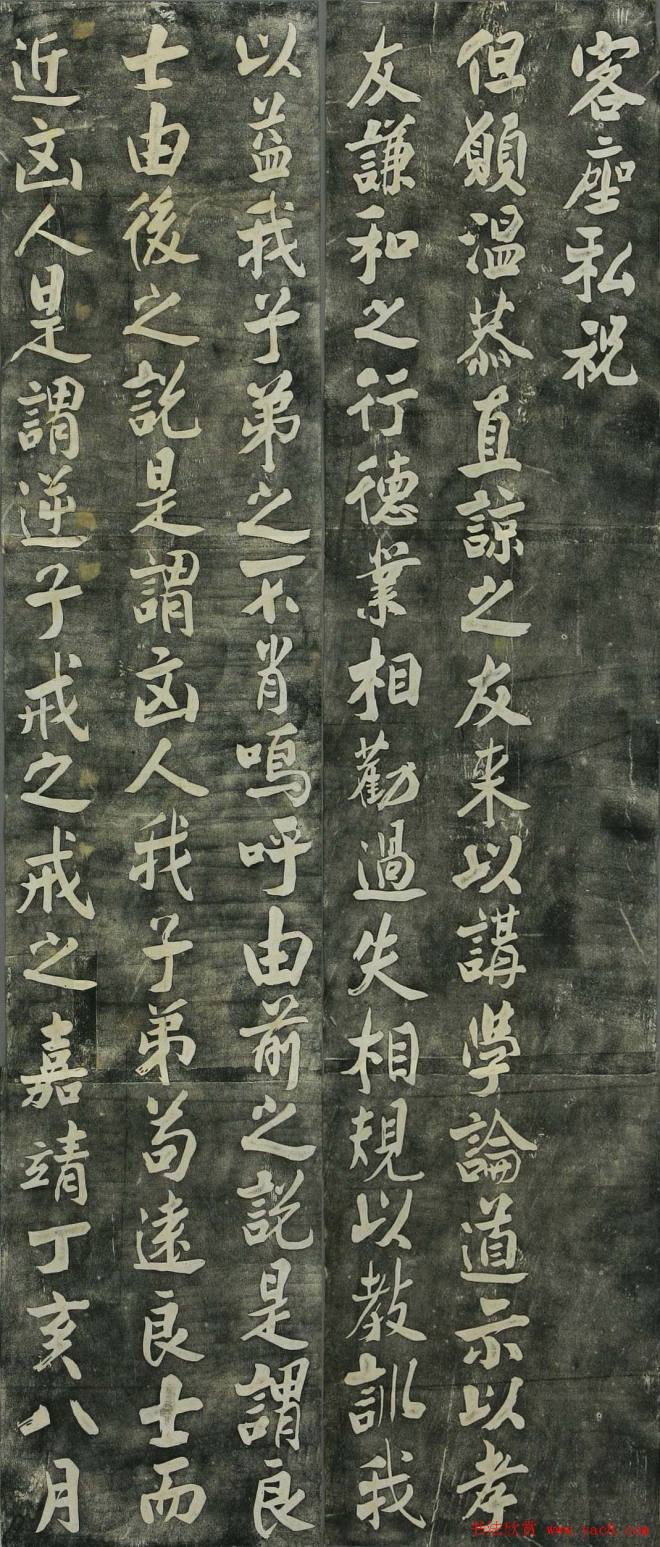 客座私祝
但願溫恭直諒之友来以講学論道示以孝
友謙和之行德業相勸過失相規以教訓我
以益我子弟之不肖嗚呼由前之説是謂良
士由後之説是謂凶人我子弟苟遠良士而
近凶人是謂逆子戒之戒之嘉靖丁亥八月
书法欣赏 www.yac8.com